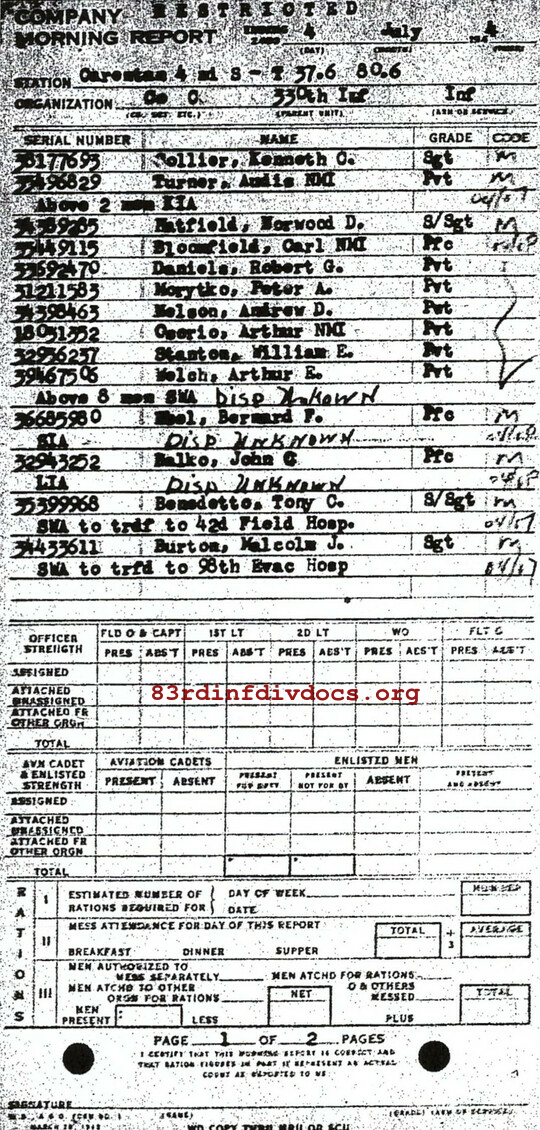 RESTRICTED
COMPANY
MORNING REPORT 4 July 4
(DAY) (MONTH)
STATION Carentan 4 mi S - T 37.6 80.6
ORGANIZATION Co C. 330th Inf Inf
(PARENT UNIT) (ARM OR SERVICE)
SERIAL NUMBER NAME GRADE CODE
38177693 Collier, Kenneth C. Sgt m
35496829 Turner, Audis NMI Pvt m
Above 2 men KIA
34389285 Hatfield, Norwood D. S/Sgt m
35449115 Bloomfield, Carl NMI Pfc
33692470 Daniels, Robert G. Pvt
31211583 Morytko, Peter A. Pvt
34398463 Nelson, Andrew D. Pvt
18031352 Osorio, Arthur NMI Pvt
32936237 Stanton, William E. Pvt
39467506 Welch, Arthur E. Pvt
Above 8 men SWA Disp Unkown
36685980 Bernard F. Pfc m
DISP UNKNOWN
32943252 Balko, John G Pfc m
LIA DISP UNKNOWN
35399968 Benedetto, Tony C. S/Sgt m
SWA to trdf to 42d Field Hosp.
34433611 Burton, Malcolm J. Sgt m
SWA to trfd to 98th Evac Hosp
OFFICER STRENGTH FLD O & CAPT 1ST LT 2D LT WO FLT O
PRES ABS'T PRES ABS'T PRES ABS'T PRES ABS'T PRES ABS'T
ASSIGNED
ATTACHED UNASSIGNED
83rdinfdivdocs.org
ATTACHED FR OTHER ORGN
TOTAL
AVN CADET & ENLISTED STRENGTH AVIATION CADETS ENLISTED MEN
PRESENT ABSENT PRESENT FOR DUTY PRESENT NOT FOR DY ABSENT PRESENT AND ABSENT
ASSIGNED
ATTACHED UNASSIGNED
ATTACHED FR OTHER ORGN
TOTAL
RATIONS
I ESTIMATED NUMBER OF RATIONS REQUIRED FOR DAY OF WEEK NUMBER
DATE
II MESS ATTENDANCE FOR DAY OF THIS REPORT TOTAL ÷ 3 AVERAGE
BREAKFAST DINNER SUPPER
III MEN AUTHORIZED TO MESS SEPARATELY MEN ATCHD FOR RATIONS
MEN ATCHD TO OTHER ORGN FOR RATIONS NET O & OTHERS MESSED TOTAL
MEN PRESENT LESS PLUS
PAGE 1 OF 2 PAGES
I CERTIFY THAT THIS MORNING REPORT IS CORRECT AND
THAT RATION FIGURES IN PART II REPRESENT AN ACTUAL
COUNT AS REPORTED TO ME
SIGNATURE
W.D., A.G.O. FORM NO. 1 (NAME) (GRADE) (ARM OR SERVICE)
MARCH 1943
WD COPY THRU MRU OR SCU